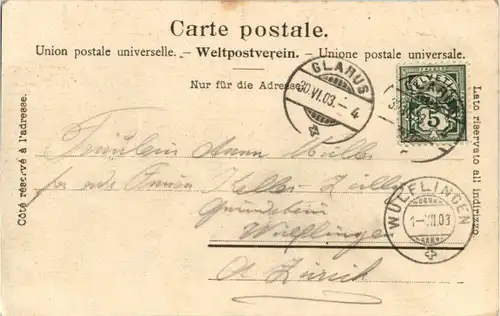 Carte postale.
Union postale universelle. — Weltpostverein. — Unione postale universale.
Nur für die Adresse
GLARUS
30.VI.03.– 4
HELVETIA
5
Côté réservé à l'adresse.
Lato riservato all' indirizzo.
Fräulein Anna Müller
Keller-Zuller
Grundstein
Wülflingen
Ct. Zürich
WÜLFLINGEN
1–VII.03